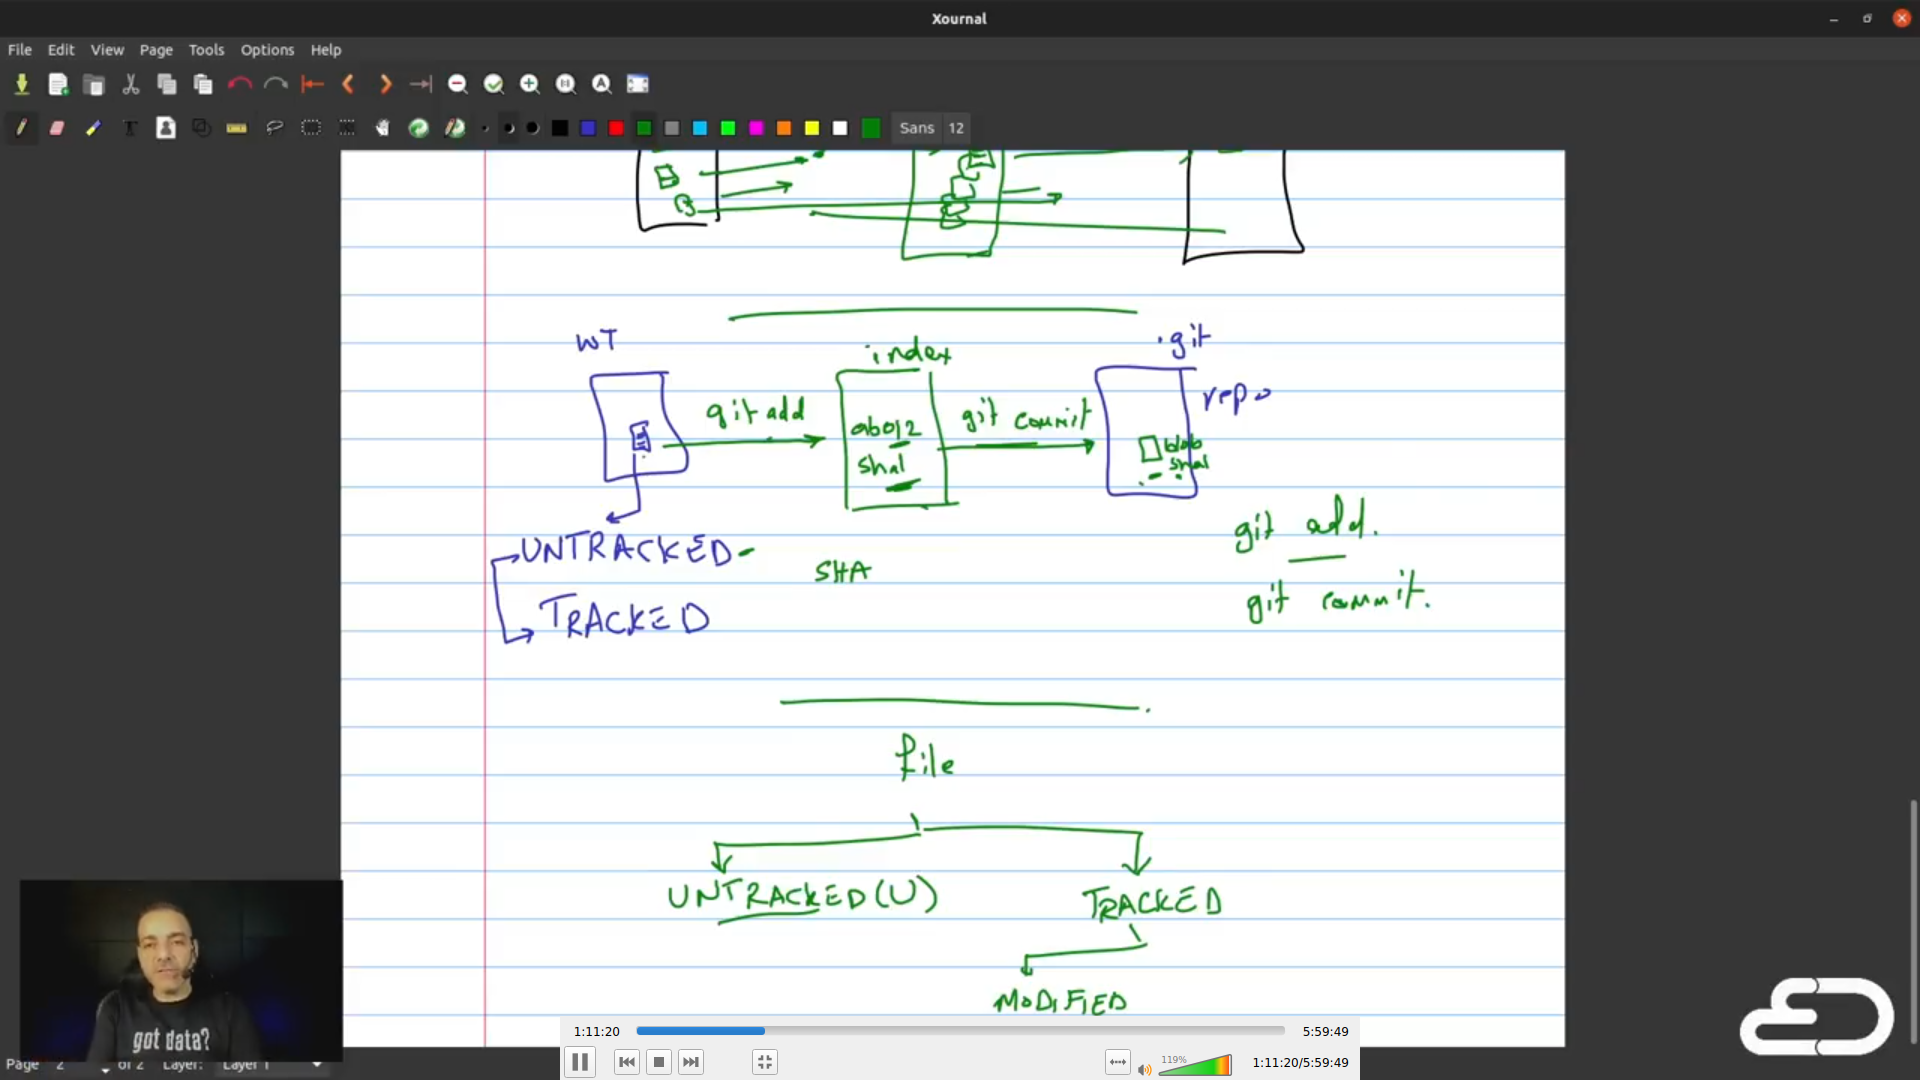 Xournal
File Edit View Page Tools Options Help
Sans 12
WT
index
.git
repo
git add
git commit
ab012
sha1
blob
sha1
UNTRACKED
TRACKED
SHA
git add.
git commit.
file
UNTRACKED (U)
TRACKED
MODIFIED
got data?
Page 2 of 2 Layer: Layer 1
1:11:20 5:59:49
119%
1:11:20/5:59:49